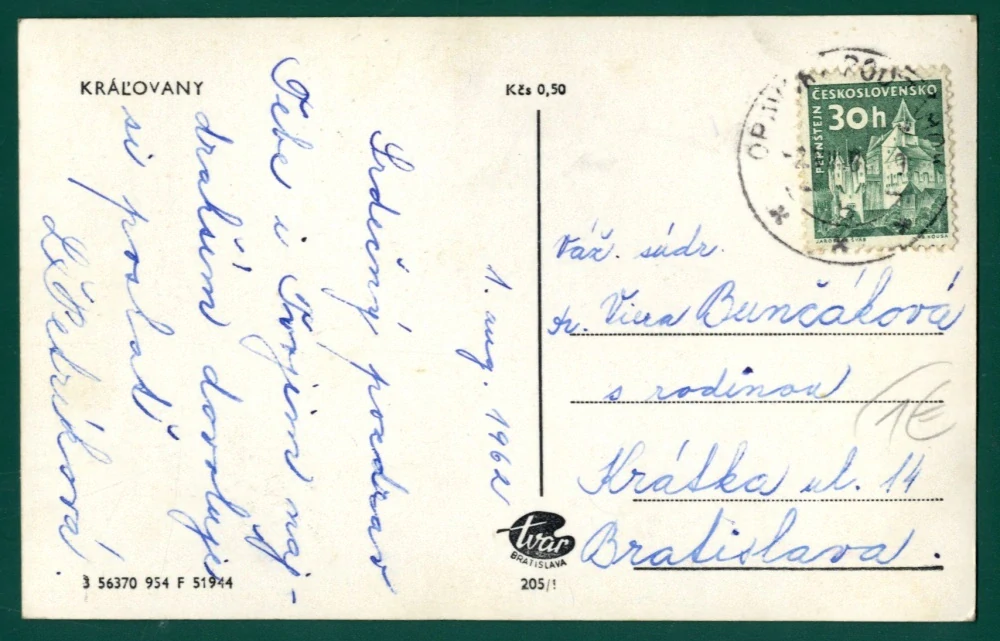 KRÁĽOVANY
Kčs 0,50
1. aug. 1962
Srdečný pozdrav
Tebe i Tvojim naj-
drahším dovoluje
si poslať
Petríková
3 56370 954 F 51944
tvar
BRATISLAVA
205/
ČESKOSLOVENSKO
30h
PERNŠTEJN
Váž. súdr.
Viera Bunčáková
s rodinou
Krátka ul. 14
Bratislava.
1€